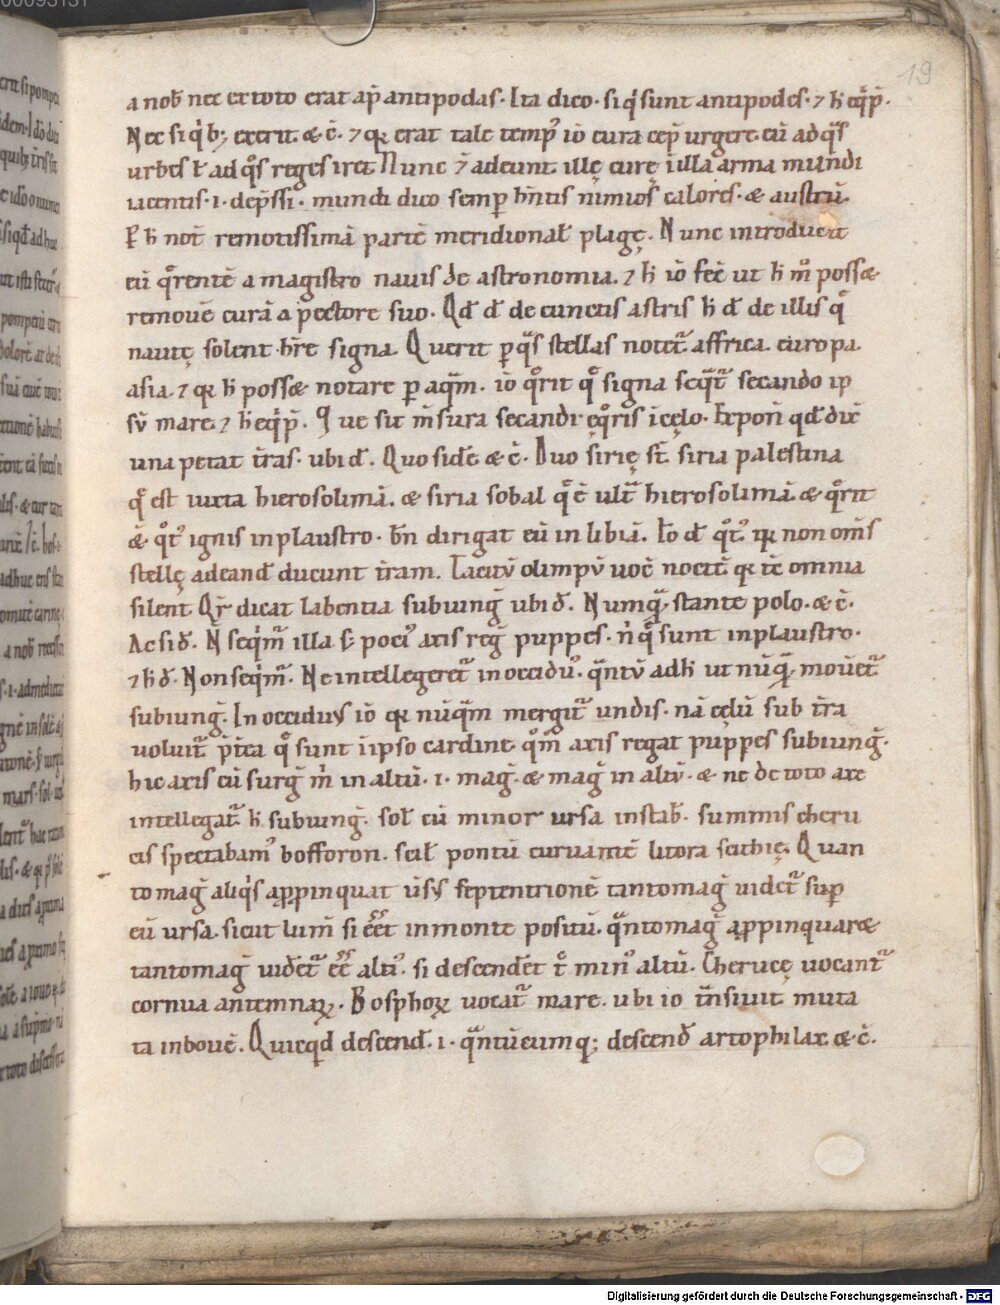 19
a nob̄ nec ex toto erat ap̄ antipodas. Ita dico. si q̇ sunt antipodes. ⁊ h̄ eq̄p̄.
Nec si q̇b; exerit. & c̄. ⁊ qr erat tale temp᷒ iō cura cep̄ urgere. eū ad q᷒s
urbes ł ad q᷒s reges iret Nunc ⁊ adeunt. illę curę illa arma mundi
iacentis. i. dep̄ssi. mundi dico semp̄ hn̄tis nimios calores. & austrū.
P̄ h̄ not̄ remotissimā partē meridional̄ plagę. Nunc introducit
eū q̊rentē a magistro navis de astronomia. ⁊ h̄ iō fec̄ ut h̄ m̊ posse
removē curā a pectore suo. Qd̄ d̄ de cunctis astris h̄ d̄ de illis q̊
nautę solent hr̄e signa. Querit p̱ q᷒s stellas notet᷒ affrica. europa
asia. ⁊ qr h̄ posse notare p̱ aq̄m. iō q̊rit q̊ signa seq̄t᷒ secando ip
sv̄ mare. ⁊ h̄ eq̄p̄. Que sit m̄sura secandi ęq̊ris i cęlo. Expon̄ qd̄ dix̄
una petat tr̄as. ubi d̄. Quo sidē & c̄. Duo sirię st̄. siria palestina
q̊ est iuxta hierosolimā. & siria sobal q̊ ē ult᷒ hierosolimā. & q̊rit
& q̊t᷒ ignis in plaustro. bn̄ dirigat eū in libiā. Iō d̄ q̊t᷒. qr non om̄s
stellę ad eand̄ ducunt tr̄am. Tacitv̄ olimpv̄ uoc̄ noctē. qr tc̄ omnia
silent. Qr̄ dicat labentia subiunḡ ubi d̄. Numq̄. stante polo. & c̄.
Ac si d̄. N̄ seq̇m᷒ illa s; poci᷒ axis reḡ puppes. n̄ q̊ sunt in plaustro.
⁊ h̄ d̄. Non seq̇m᷒. Ne intellegeret᷒ in occidu᷒. q̄ntv̄ ad h̄ ut nūq̄ movet᷒
subiunḡ. In occiduus iō qr nūq̄m mergit᷒ undis. nā cęlū sub tr̄a
uoluit᷒ p̄t ea q̊ sunt i ipso cardine. q̊m̄ axis regat puppes subiunḡ.
hic axis cū surḡ m̄ in altū. i. maḡ. & maḡ in altv̄. & ne de toto axe
intellegat᷒ h̄ subiunḡ. sol̄ cū minor ursa instab̄. summis cheru
cis spectabam᷒ bofforon. scil̄ pontū curuantē litora scithię. Quan
to maḡ aliq̇s appinquat ūsus septentrionē tantomaḡ uidet᷒ sup̄
eū ursa. sicut lum̄ si ēēt in monte positū. q̄ntomaḡ appinquare
tantomaḡ uidet᷒ ēē alti᷒. si descendet t̊ min᷒ altū. Cherucę uocant᷒
cornua antemnarꝝ. Bosphorꝝ uocat᷒ mare. ubi io tn̄siuit muta
ta in bovē. Quicqd̄ descend̄. i. q̄ntūcumq; descend̄ artophilax & c̄.
Digitalisierung gefördert durch die Deutsche Forschungsgemeinschaft - DFG